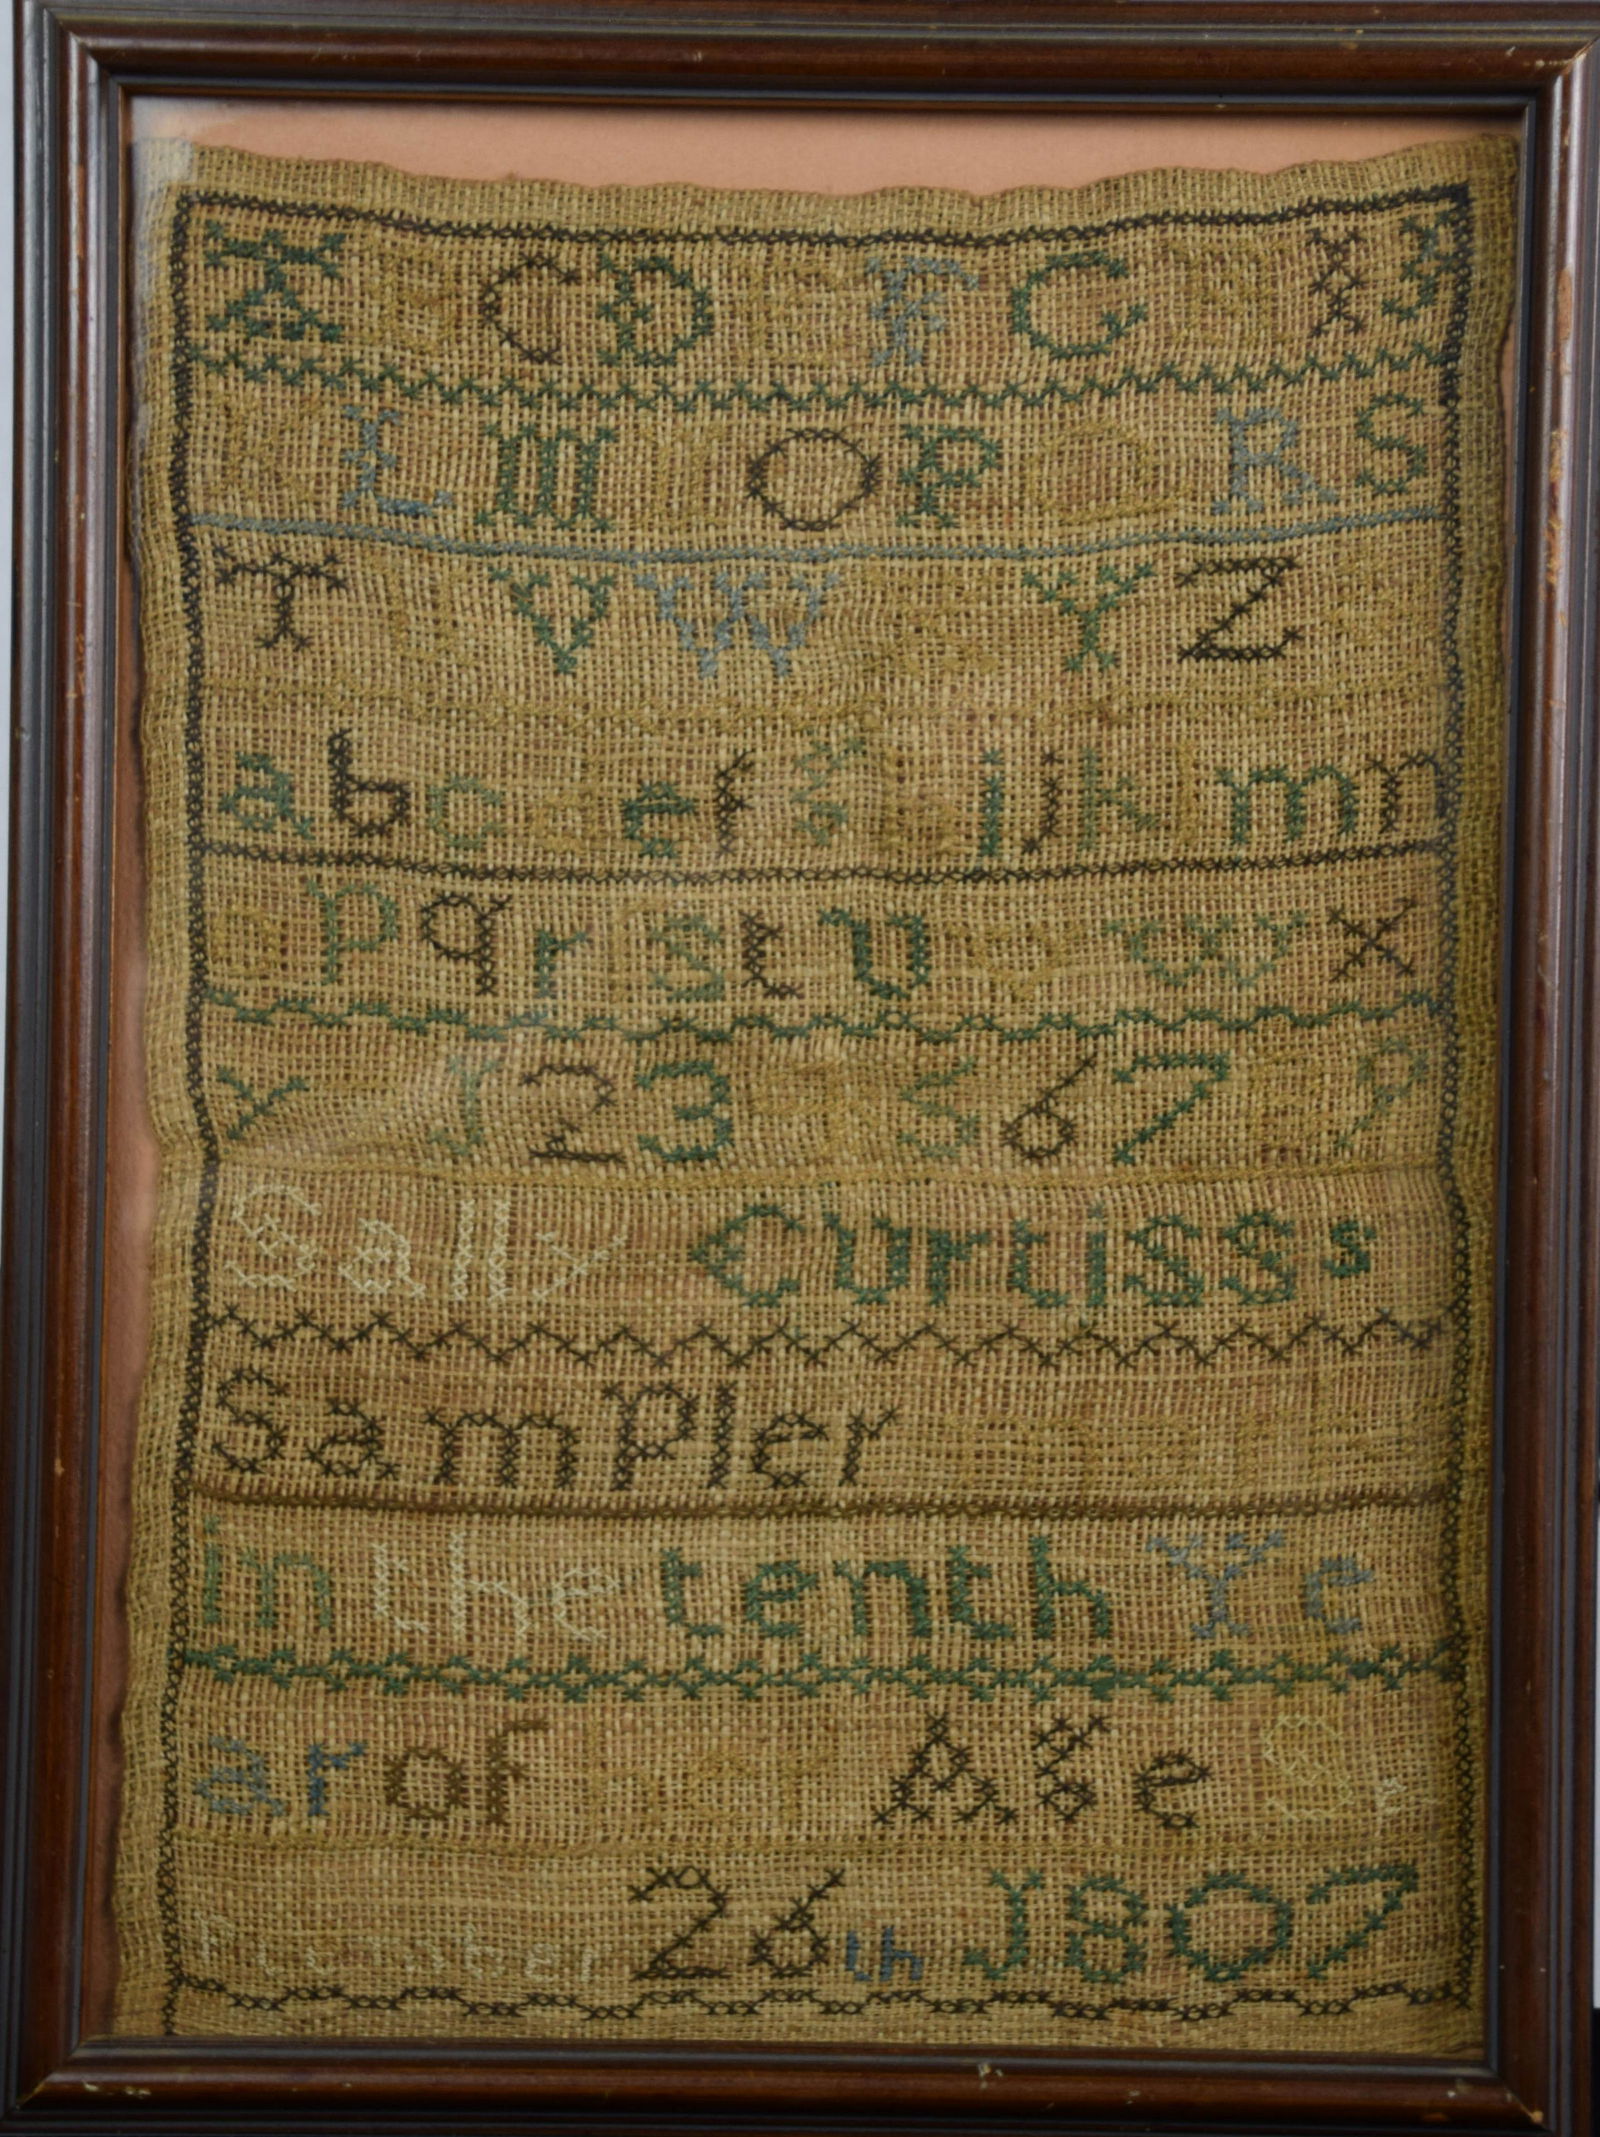 A B C D E F G H I J
K L M N O P Q R S
T U V W X Y Z
a b c d e f g h i j k l m n
o p q r s t u v w x
y 1 2 3 4 5 6 7 8 9
Sally Curtiss s
Sampler
in the tenth Ye
ar of her Age
26th 1807